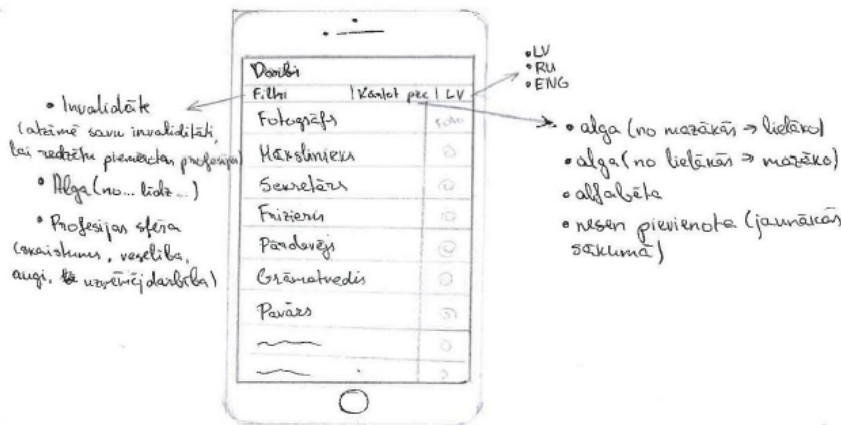 Darbi
Filtri | Kārtot pēc | LV
Fotogrāfs foto
Mākslinieks
Sekretārs
Frizieris
Pārdevējs
Grāmatvedis
Pavārs
• Invaliditāte
(atzīmē savu invaliditāti,
lai redzētu piemērotas profesijas)
• Alga (no... līdz...)
• Profesijas sfēra
(skaistums, veselība,
augi, uzņēmējdarbība)
• LV
• RU
• ENG
• alga (no mazākās → lielāko)
• alga (no lielākās → mazāko)
• alfabēta
• nesen pievienota (jaunākās
sākumā)